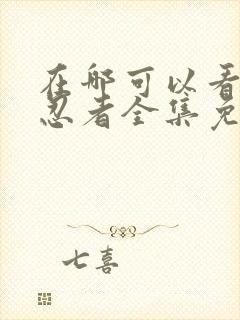 在哪可以看
忍者全集免
七喜